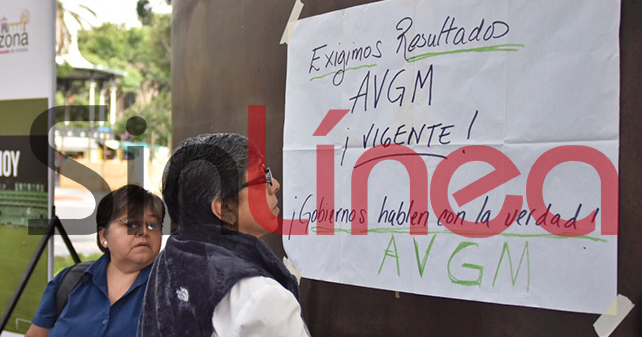 zona
HOY
Exigimos Resultados
AVGM
¡VIGENTE!
¡Gobiernos hablen con la verdad!
AVGM
Sin línea